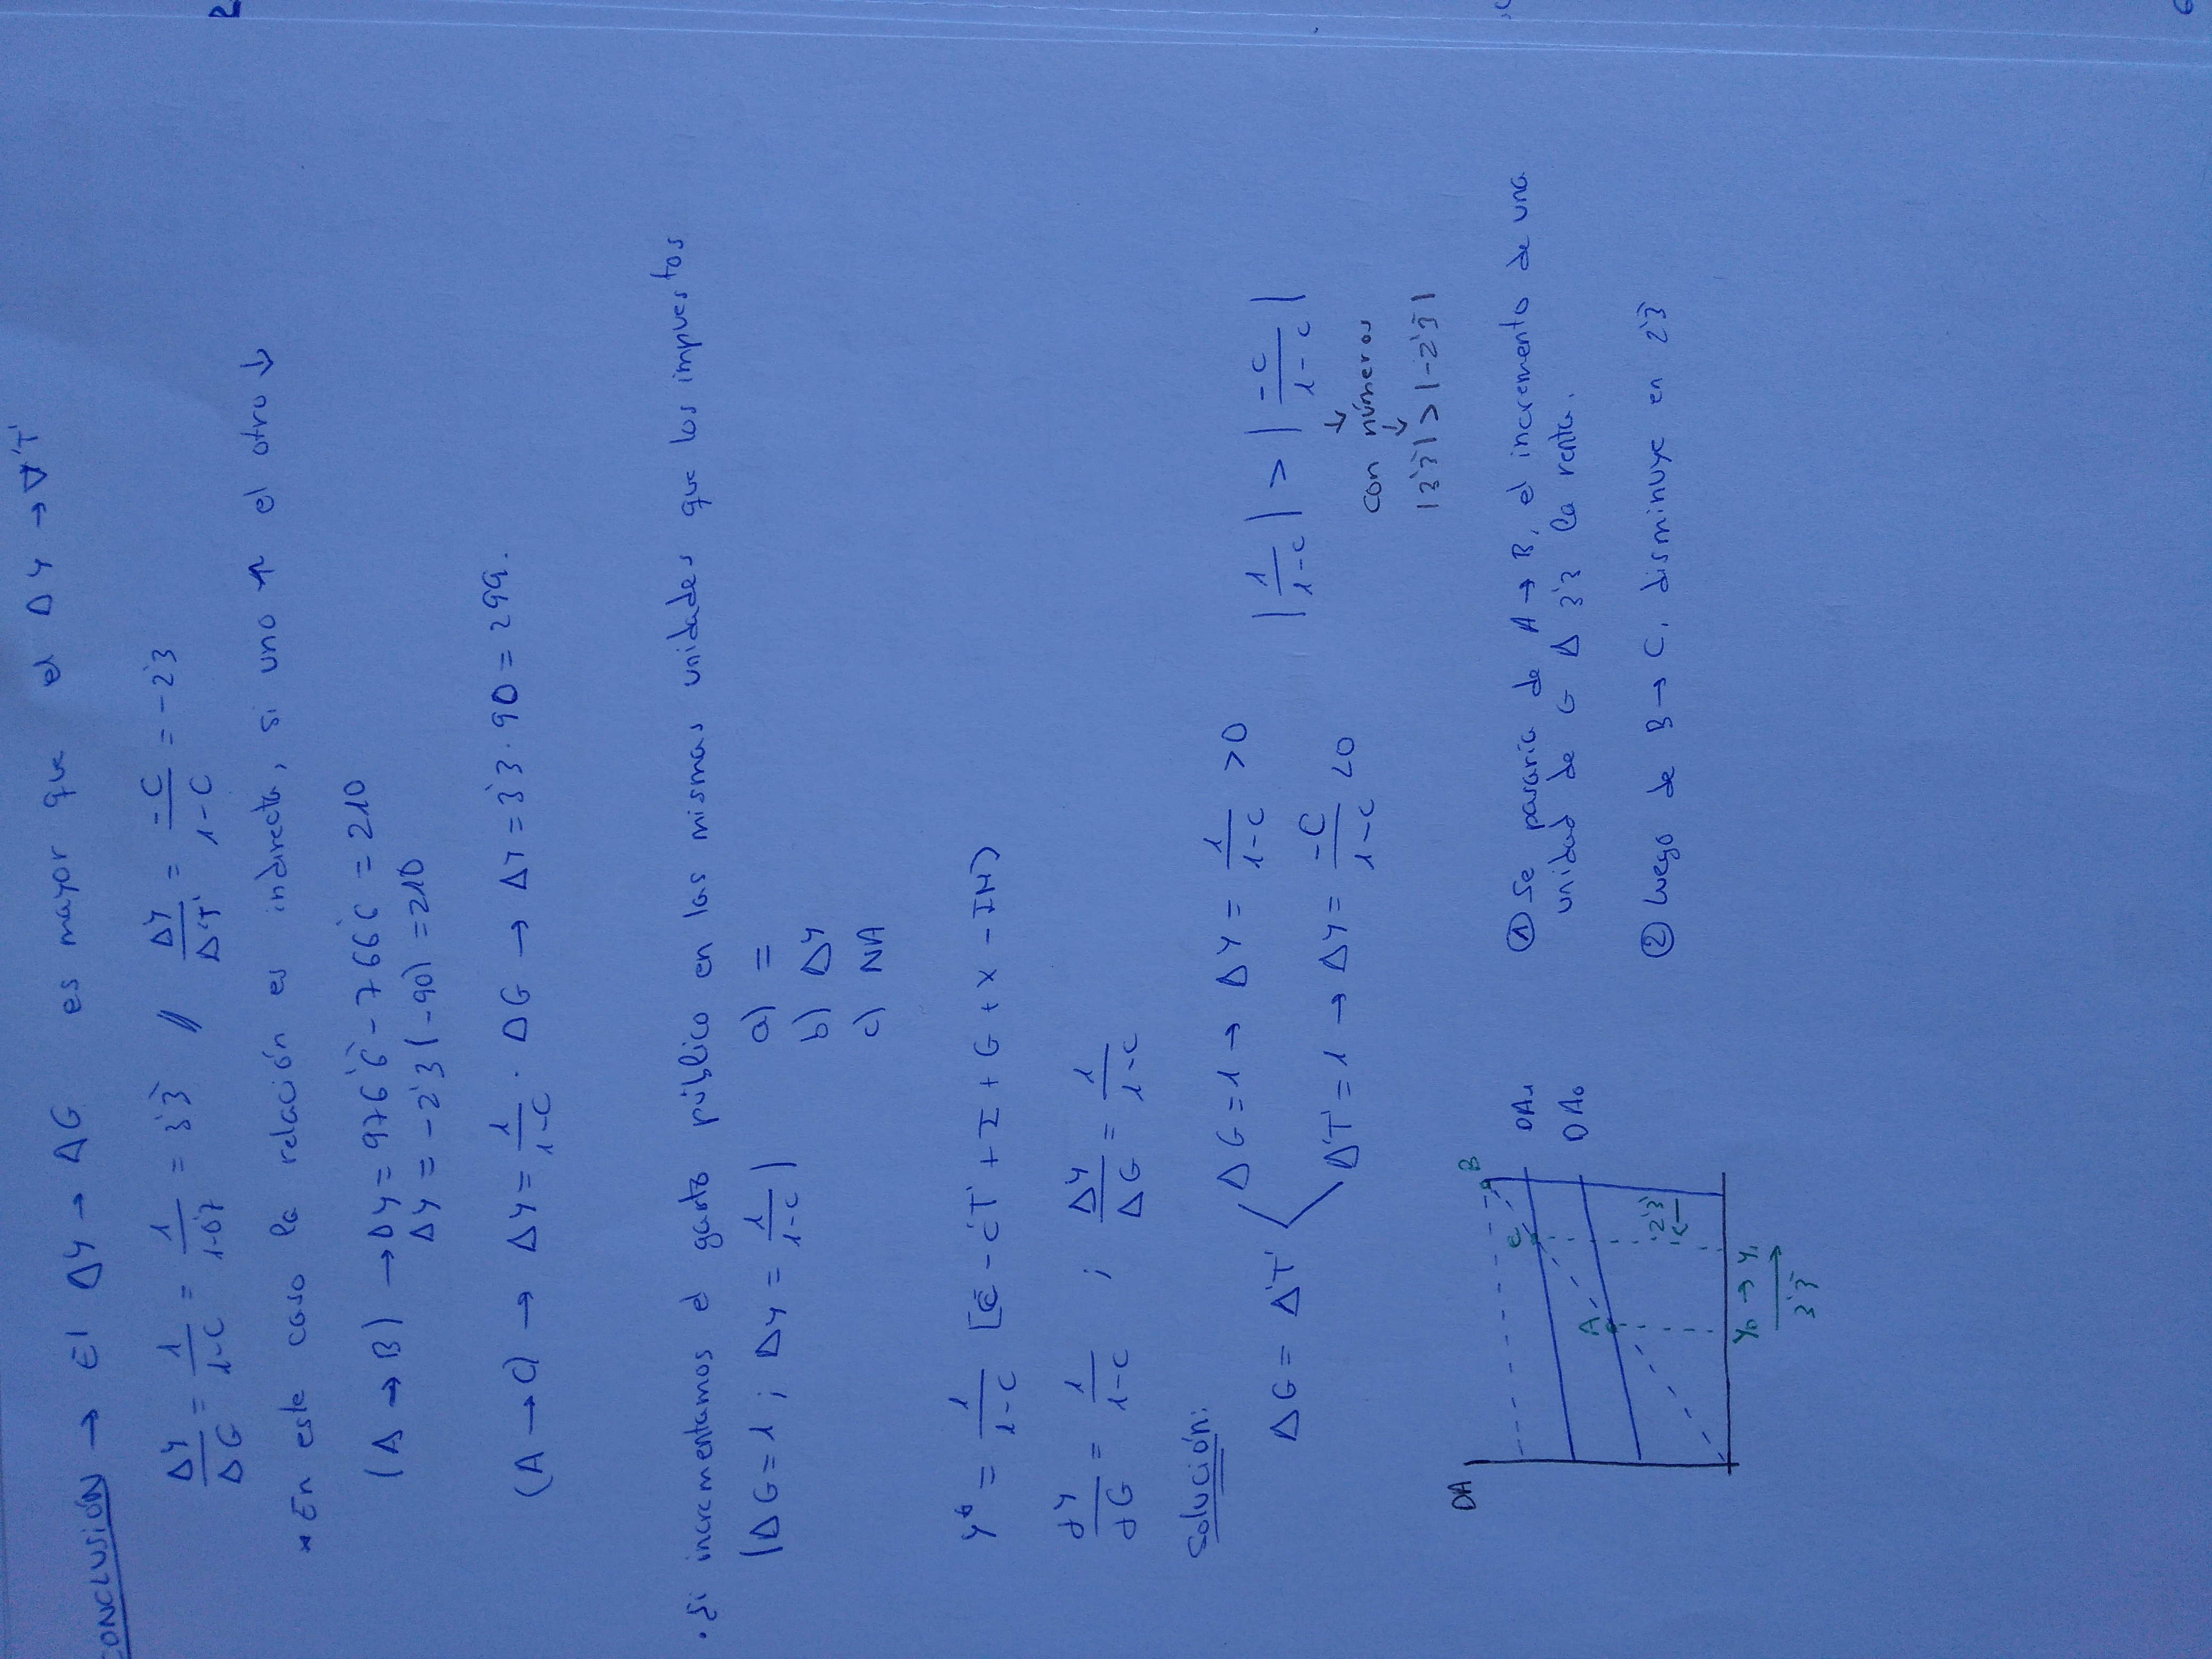 CONCLUSIÓN → El ΔY → ΔG es mayor que el ΔY → ∇T
ΔY/ΔG = 1/1-C = 1/1-0'7 = 3'3 // ΔY/ΔT = -C/1-C = -2'3
* En este caso la relación es indirecta, si uno ↑ el otro ↓
(A → B) → ΔY = 976'6 - 766'6 = 210
ΔY = -2'3 (-90) = 210
(A → C) → ΔY = 1/1-C · ΔG → ΔY = 3'3 · 90 = 299.
· Si incrementamos el gasto público en las mismas unidades que los impuestos
(ΔG = 1 ; ΔY = 1/1-c) a) =
b) ΔY
c) NA
Y* = 1/1-c [C̄ - cT + I + G + X - IM)
dY/dG = 1/1-c ; ΔY/ΔG = 1/1-c
Solución:
ΔG = ΔT
ΔG = 1 → ΔY = 1/1-c > 0
ΔT = 1 → ΔY = -C/1-c < 0
|1/1-c| > |-c/1-c|
↓
con números
↓
|3'3| > |-2'3|
DA
DA₁
DA₀
A
B
C
2'3
←
Y₀ → Y₁
3'3
① Se pasaría de A → B, el incremento de una
unidad de G Δ 3'3 la renta.
② Luego de B → C, disminuye en 2'3